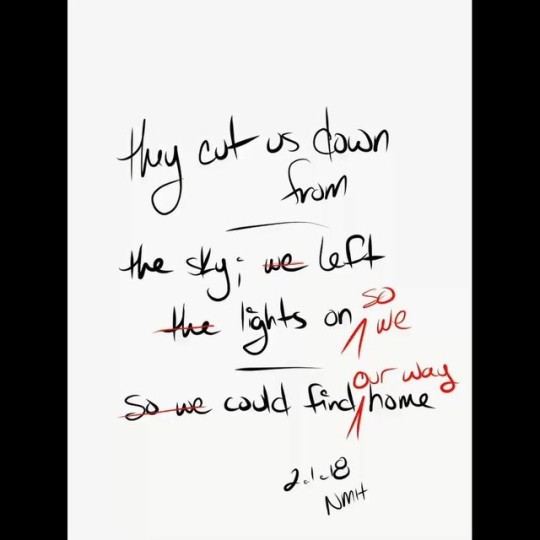 they cut us down
from
the sky; we left
the lights on so we
so we could find our way home
2.1.18
NMH